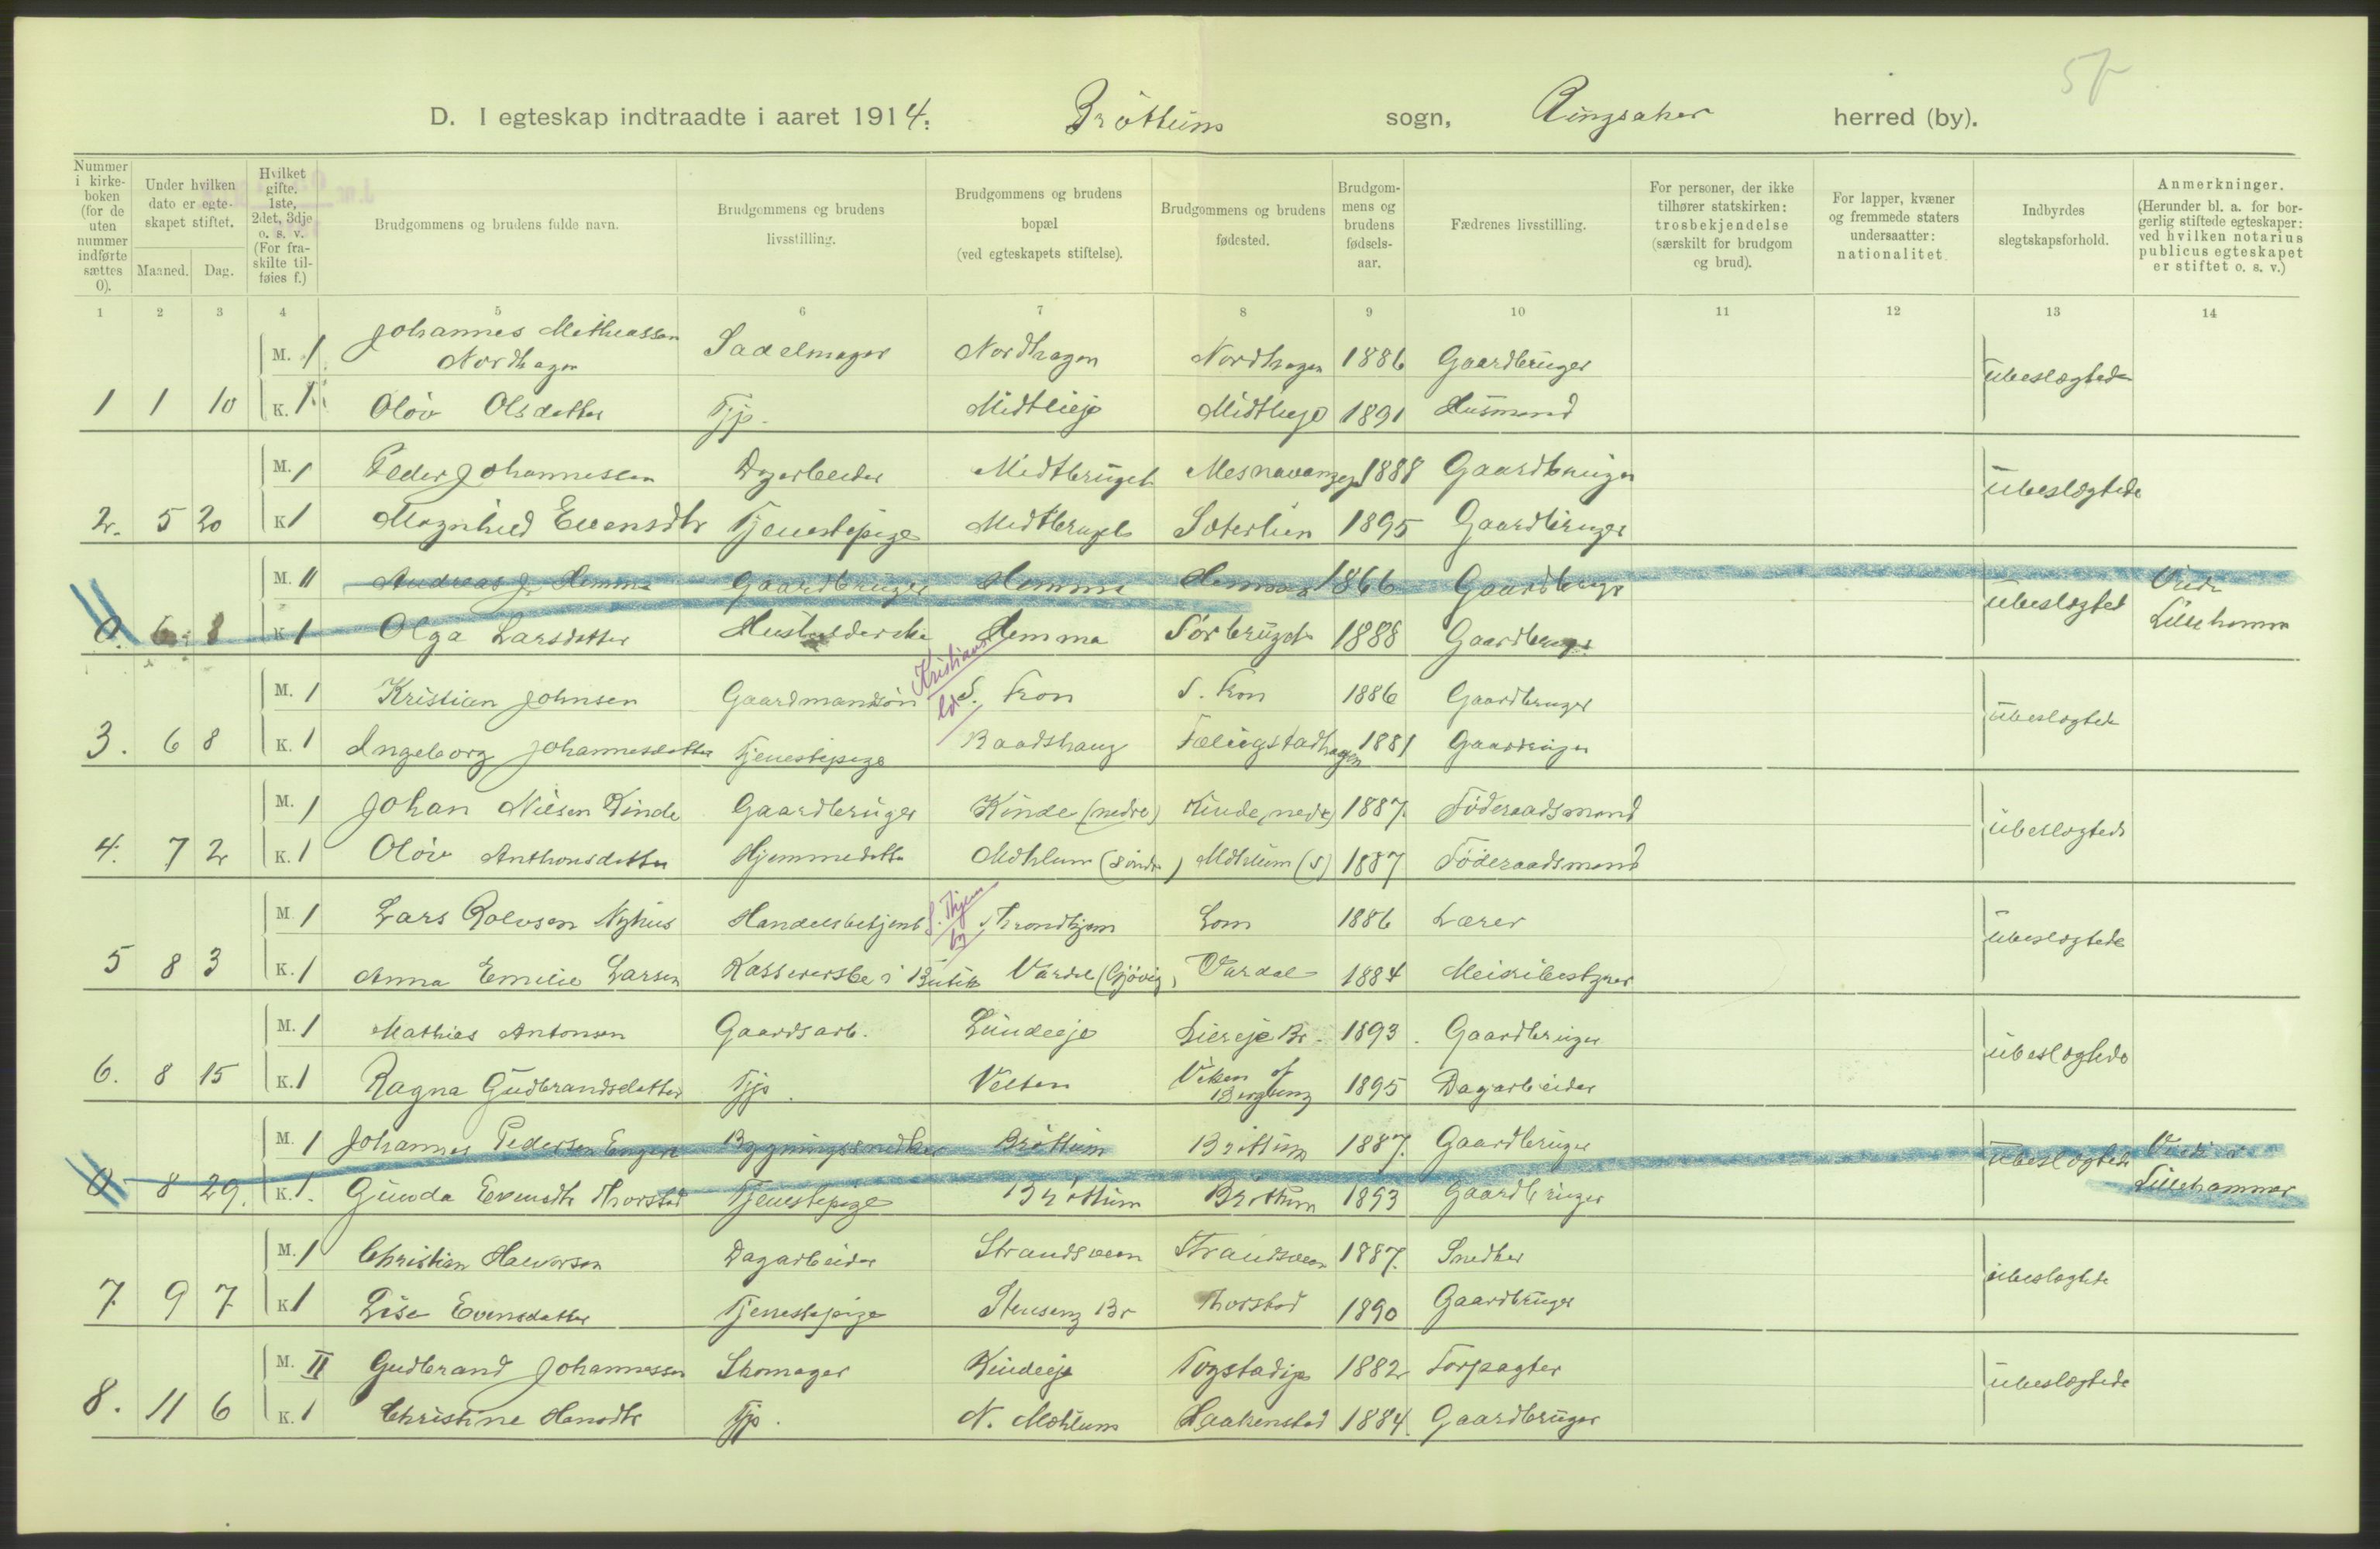 D. I egteskap indtraadte i aaret 1914. Bröttum sogn, Ringsaker herred (by).
Nummer i kirkeboken (for de uten nummer indførte sættes 0).
Under hvilken dato er egteskapet stiftet.
Maaned. Dag.
Hvilket gifte. 1ste, 2det, 3dje o. s. v. (For fraskilte tilføies f.)
Brudgommens og brudens fulde navn.
Brudgommens og brudens livsstilling.
Brudgommens og brudens bopæl (ved egteskapets stiftelse).
Brudgommens og brudens fødested.
Brudgommens og brudens fødselsaar.
Fædrenes livsstilling.
For personer, der ikke tilhører statskirken: trosbekjendelse (særskilt for brudgom og brud).
For lapper, kvæner og fremmede staters undersaatter: nationalitet.
Indbyrdes slegtskapsforhold.
Anmerkninger. (Herunder bl. a. for borgerlig stiftede egteskaper: ved hvilken notarius publicus egteskapet er stiftet o. s. v.)
1 2 3 4 5 6 7 8 9 10 11 12 13 14
M. 1 Johannes Mathiassen Nordhagen Sadelmager Nordhagen Nordhagen 1886 Gaardbruger ubeslægtede
1 1 10 K. 1 Olöv Olsdatter Tjp. Midtlieje Midtlieje 1891 Husmand
M. 1 Peder Johannessen Dagarbeider Midtbruget 1888 Gaardbruger ubeslægtede
2. 5 20 K 1 Magnhild Evensdtr Tjenestepige Midtbruget Sæterlien 1895 Gaardbruger
M. II Andreas J. Hemma Gaardbruger Hemma Hemma 1866 Gaardbruger ubeslægted Viede
0. 6 8 K 1 Olga Larsdatter Husholderske Hemma Sörbruget 1888 Gaardbruger Lillehammer
M. 1 Kristian Johnsen Gaardmandsön Kristians ld S. Fron S. Fron 1886 Gaardbruger ubeslægtede
3. 6 8 K. 1 Ingeborg Johannesdatter Tjenestepige Baadshaug Fælingstadhagen 1881 Gaardbruger
M. 1 Johan Nilsen Kinde Gaardbruger Kinde (nedre) Kinde, nedre) 1887. Föderaadsmand ubeslægtede
4. 7 2 K. 1 Olöv Anthonsdatter Hjemmedatter Mæhlum (söndre) Mæhlum (S) 1887 Föderaadsmand
M. 1 Lars Rolvsen Nyhus Handelsbetjent by Throndhjem Lom 1886 Lærer ubeslægtede
5 8 3 K. 1 Anna Emilie Larsen Kassererske i Butik Vardal (Gjövig) Vardal 1884 Meieribestyrer
M. 1 Mathias Antonsen Gaardsarb. Lundeeje Liereje Br. 1893. Gaardbruger ubeslægtede
6. 8 15 K. 1 Ragna Gudbrandsdatter Tjp. Velten Viken af Bergseng 1895 Dagarbeider
M. 1 Johannes Pedersen Engen Bygningssnedker Bröttum Bröttum 1887. Gaardbruger ubeslægtede Viede i
0. 8 29. K. 1. Gunda Evensdtr Thorstad Tjenestepige Bröttum Bröttum 1893 Gaardbruger Lillehammer
M. 1 Christian Halvorsen Dagarbeider Strandsveen Strandsveen 1887. Snedker ubeslægtede
7. 9 7 K 1 Lise Evensdatter Tjenestepige Stenseng Br Thorstad 1890 Gaardbruger
M. II Gudbrand Johannessen Skomager Kindeeje 1882 Forpagter ubeslægtede
8. 11 6 K. 1 Christine Hansdtr Tjp. N. Mæhlum Haakenstad 1884. Gaardbruger